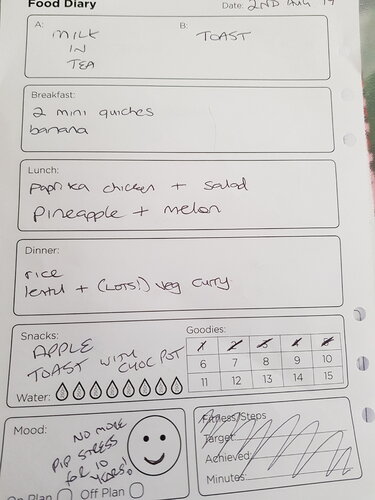 Food Diary
Date: 2ND AUG 19
A: B:
MILK TOAST
IN
TEA
Breakfast:
2 mini quiches
banana
Lunch:
Paprika chicken + salad
Pineapple + melon
Dinner:
rice
lentil + (LOTS!) veg curry
Snacks: Goodies:
APPLE
TOAST WITH CHOC PST
1 2 3 4 5
6 7 8 9 10
11 12 13 14 15
Water:
Mood:
NO MORE
PIP STRESS
FOR 10
YEARS!
Fitness/Steps
Target:
Achieved:
Minutes:
On Plan Off Plan